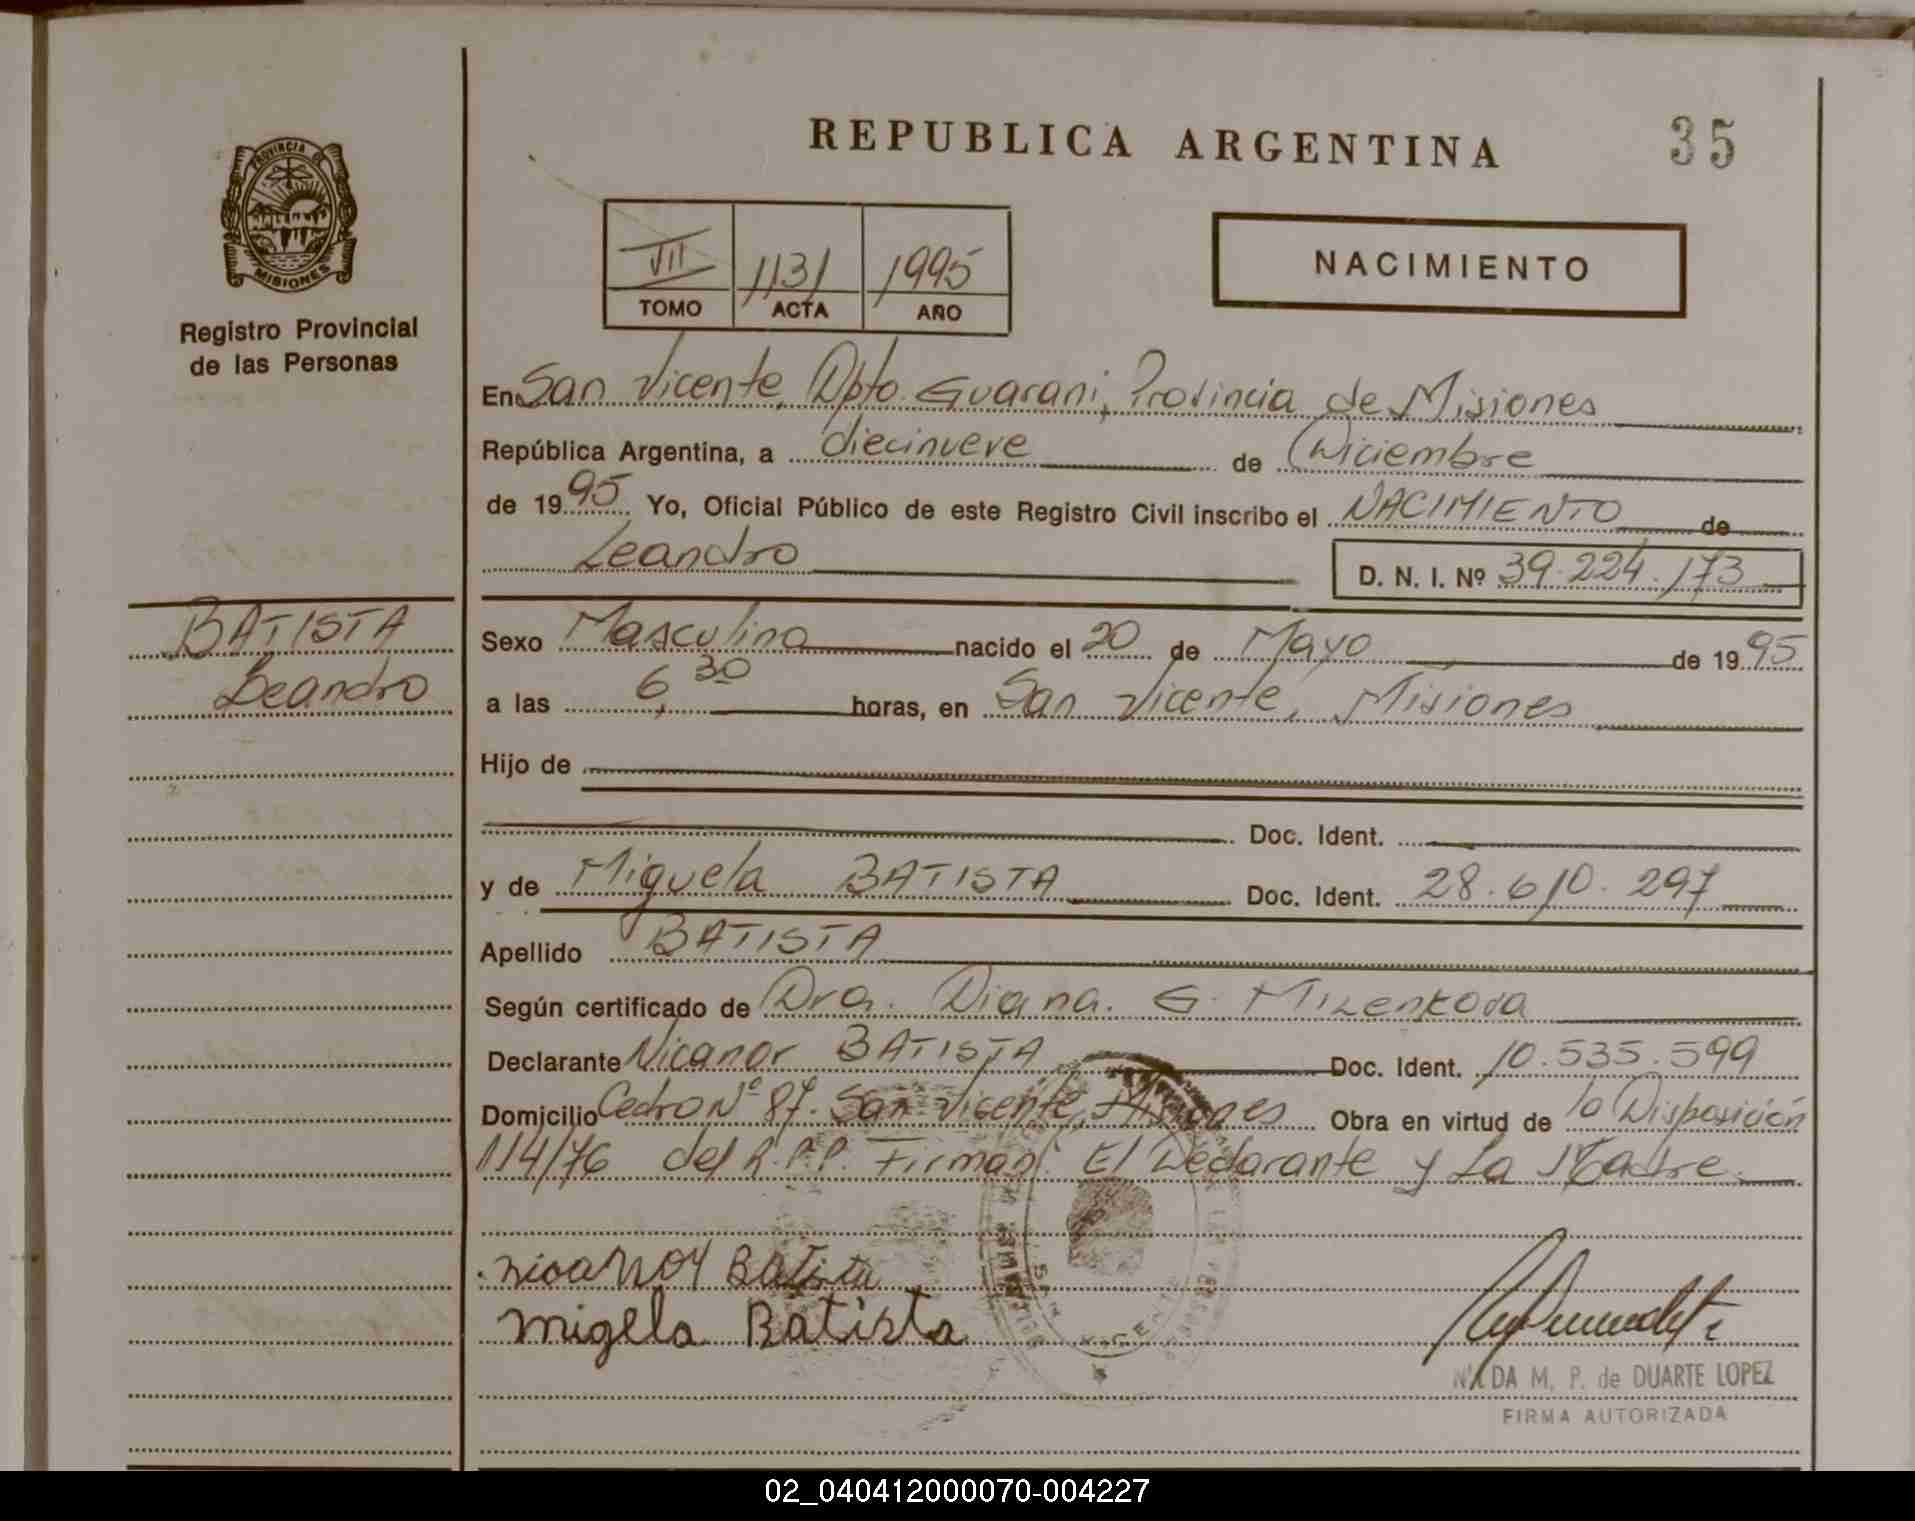 REPUBLICA ARGENTINA
35
PROVINCIA DE
MISIONES
Registro Provincial
de las Personas
VII 1131 1995
TOMO ACTA AÑO
NACIMIENTO
En San Vicente, Dpto. Guarani, Provincia de Misiones
República Argentina, a diecinueve de Diciembre
de 1995 Yo, Oficial Público de este Registro Civil inscribo el NACIMIENTO de
Leandro D. N. I. Nº 39.224.173
BATISTA
Leandro
Sexo Masculino nacido el 20 de Mayo de 1995
a las 6,30 horas, en San Vicente, Misiones
Hijo de
Doc. Ident.
y de Miguela BATISTA Doc. Ident. 28.610.297
Apellido BATISTA
Según certificado de Dra. Diana. G. Milenkova
Declarante Nicanor BATISTA Doc. Ident. 10.535.599
Domicilio Cedro Nº 87. San Vicente, Misiones Obra en virtud de la Disposición
114/76 del R.P.P. Firman: El Declarante y La Madre.
nicaNor Batista
migela Batista
M. P. de DUARTE LOPEZ
FIRMA AUTORIZADA
02_040412000070-004227